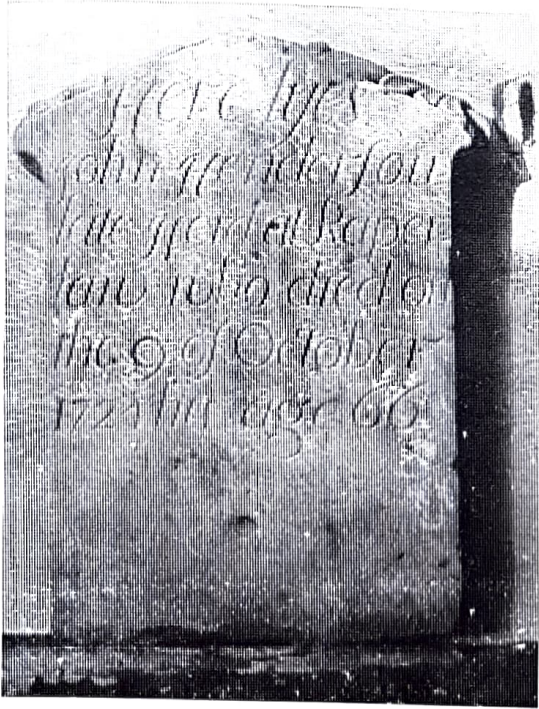 Here lyes
John Henderson
late Herd at Rapa
law who died on
the 9 of October
his age 66